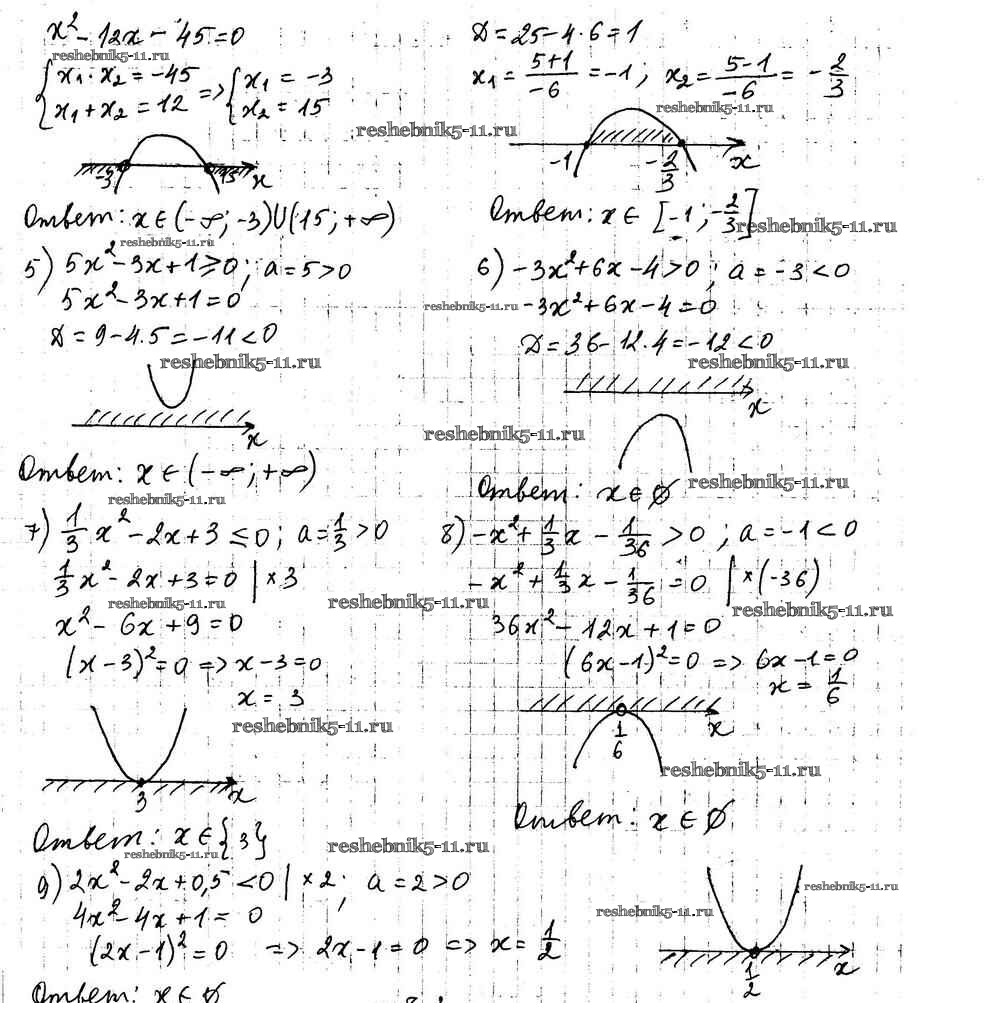 x² - 12x - 45 = 0
reshebnik5-11.ru
{ x₁ · x₂ = -45
x₁ + x₂ = 12 => { x₁ = -3
x₂ = 15
reshebnik5-11.ru
-3 15 x
Ответ: x ∈ (-∞; -3) ∪ (15; +∞)
reshebnik5-11.ru
Д = 25 - 4 · 6 = 1
x₁ = (5+1)/(-6) = -1; x₂ = (5-1)/(-6) = -2/3
reshebnik5-11.ru
-1 -2/3 x
Ответ: x ∈ [-1; -2/3]
reshebnik5-11.ru
5) 5x² - 3x + 1 ≥ 0; a = 5 > 0
5x² - 3x + 1 = 0
Д = 9 - 4 · 5 = -11 < 0
reshebnik5-11.ru
x
Ответ: x ∈ (-∞; +∞)
reshebnik5-11.ru
6) -3x² + 6x - 4 > 0; a = -3 < 0
reshebnik5-11.ru
-3x² + 6x - 4 = 0
Д = 36 - 12 · 4 = -12 < 0
reshebnik5-11.ru
x
reshebnik5-11.ru
Ответ: x ∈ ∅
reshebnik5-11.ru
7) 1/3 x² - 2x + 3 ≤ 0; a = 1/3 > 0
1/3 x² - 2x + 3 = 0 | × 3
reshebnik5-11.ru
reshebnik5-11.ru
x² - 6x + 9 = 0
(x - 3)² = 0 => x - 3 = 0
x = 3
reshebnik5-11.ru
3 x
Ответ: x ∈ {3}
reshebnik5-11.ru
reshebnik5-11.ru
8) -x² + 1/3 x - 1/36 > 0; a = -1 < 0
-x² + 1/3 x - 1/36 = 0 | × (-36)
reshebnik5-11.ru
36x² - 12x + 1 = 0
(6x - 1)² = 0 => 6x - 1 = 0
x = 1/6
1/6 x
reshebnik5-11.ru
Ответ: x ∈ ∅
9) 2x² - 2x + 0,5 < 0 | × 2; a = 2 > 0
4x² - 4x + 1 = 0
(2x - 1)² = 0 => 2x - 1 = 0 => x = 1/2
reshebnik5-11.ru
reshebnik5-11.ru
1/2 x
Ответ: x ∈ ∅